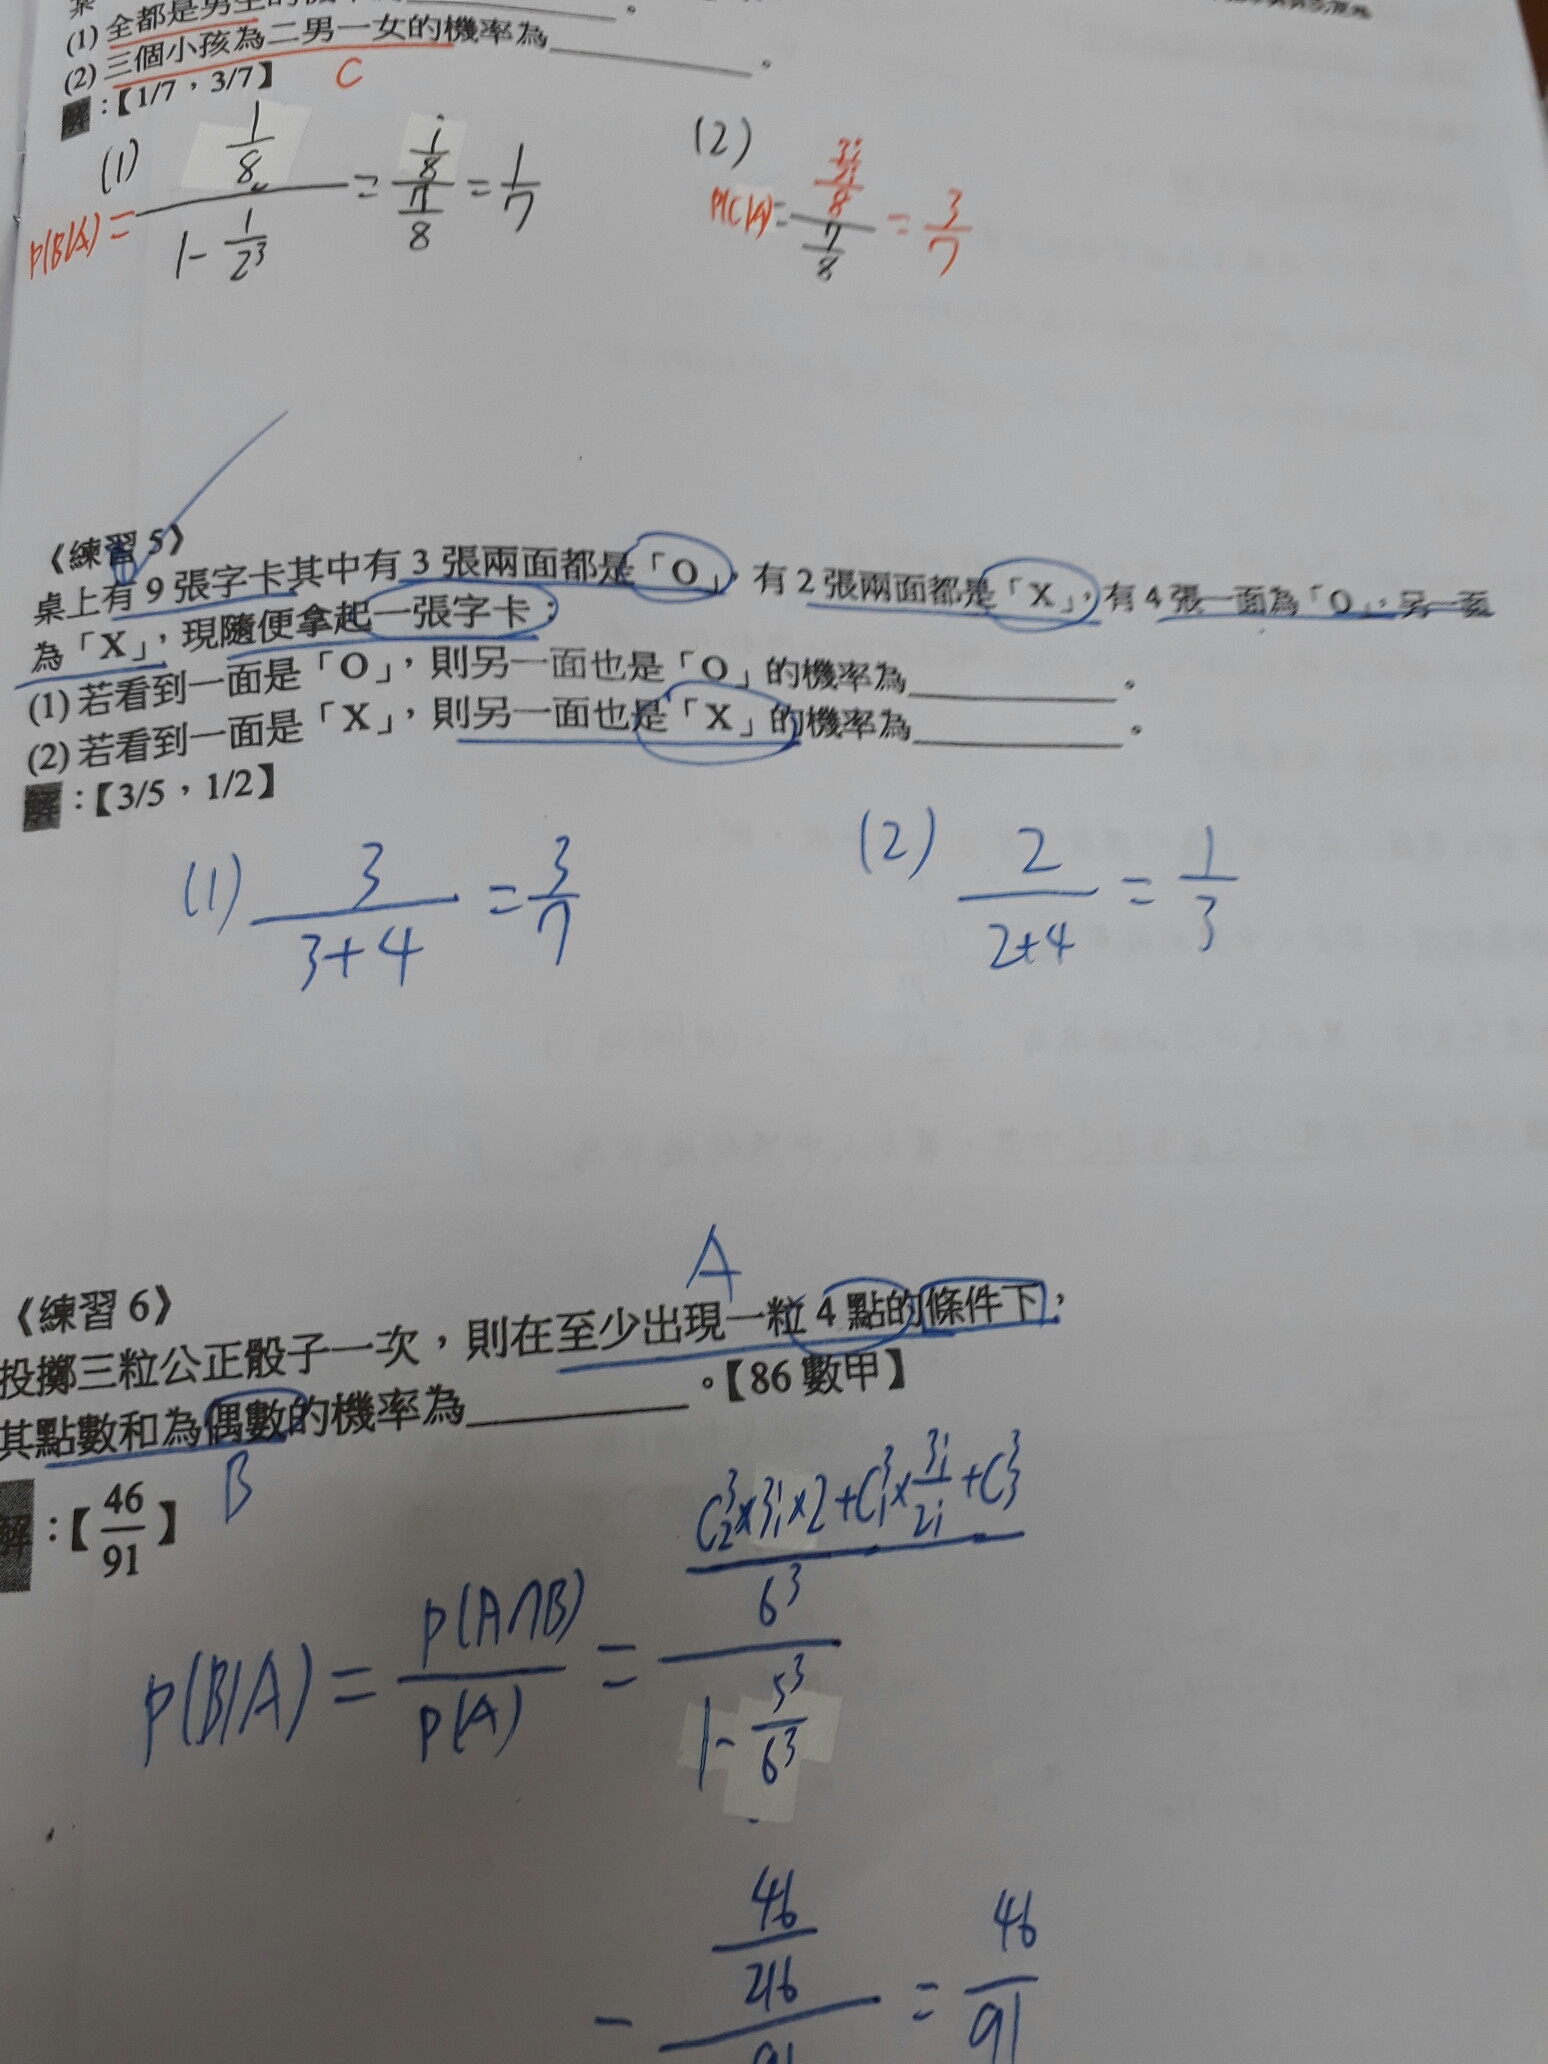 (1) 全都是男生的機率為__________。
(2) 三個小孩為二男一女的機率為__________。
解:【1/7,3/7】 C
(1) P(B|A) = (1/8)/(1 - 1/2³) = (1/8)/(7/8) = 1/7
(2) P(C|A) = (3!/2!/8)/(7/8) = 3/7
《練習 5》
桌上有 9 張字卡其中有 3 張兩面都是「O」,有 2 張兩面都是「X」,有 4 張一面為「O」,另一面
為「X」,現隨便拿起一張字卡:
(1) 若看到一面是「O」,則另一面也是「O」的機率為__________。
(2) 若看到一面是「X」,則另一面也是「X」的機率為__________。
解:【3/5,1/2】
(1) 3/(3+4) = 3/7
(2) 2/(2+4) = 1/3
A
《練習 6》
投擲三粒公正骰子一次,則在至少出現一粒 4 點的條件下,
其點數和為偶數的機率為__________。【86 數甲】
B
解:【46/91】
P(B|A) = P(A∩B)/P(A) = ((C³₂×3!×2+C³₁×3!/2!+C³₃)/6³)/(1 - 5³/6³)
= (46/216)/(91 = 46/91